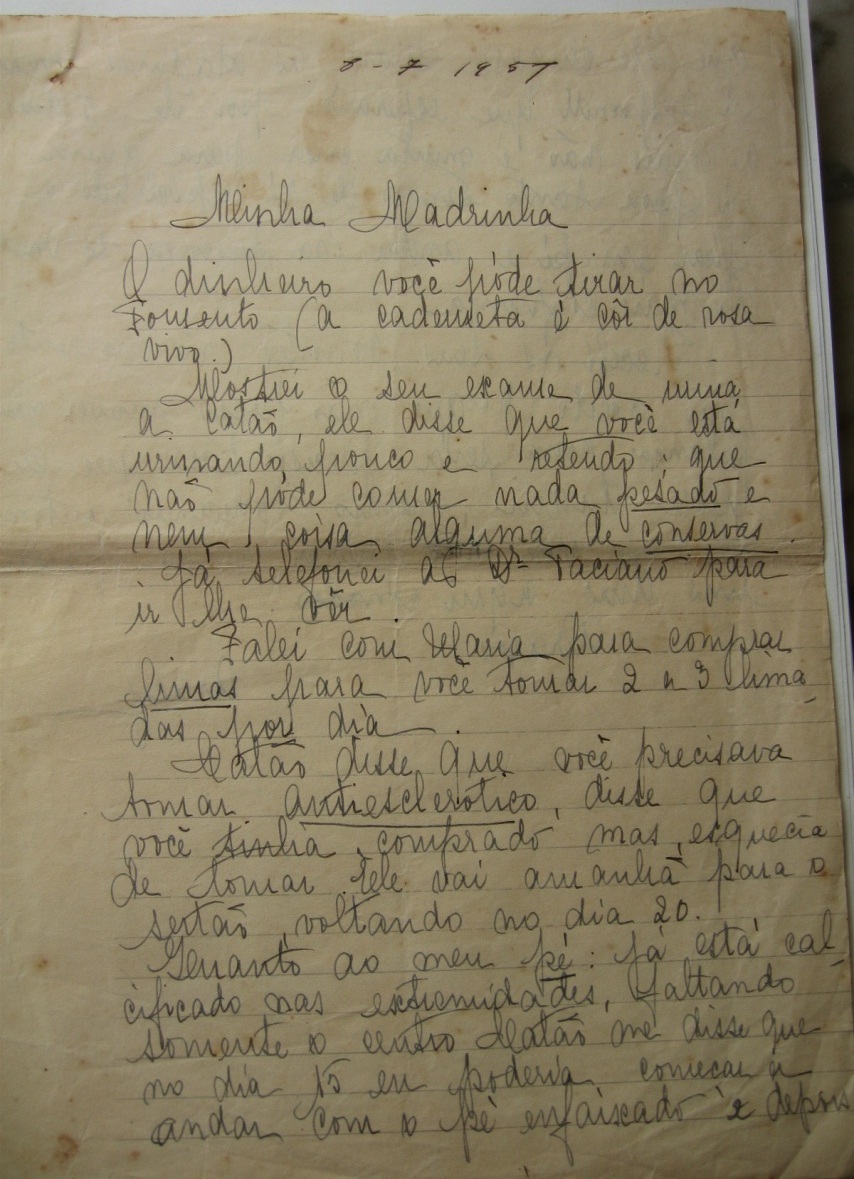 8-7 1957
Minha Madrinha
O dinheiro você póde tirar no
Fomento (a caderneta é côr de rosa
vivo.)
Mostrei o seu exame de urina
a Catão, ele disse que você está
urinando pouco e retendo; que
não póde comer nada pesado e
nem coisa alguma de conservas.
Já telefonei ao Dr. Taciano para
ir lhe vêr.
Falei com Maria para comprar
limas para você tomar 2 a 3 lima
das por dia.
Catão disse que você precisava
tomar Antiesclerotico, disse que
você tinha comprado mas esquecia
de tomar. Ele vai amanhã para o
sertão, voltando no dia 20.
Quanto ao meu pé: já está cal-
cificado nas extremidades, faltando
somente o centro. Catão me disse que
no dia 15 eu poderia começar a
andar com o pé enfaixado e depois